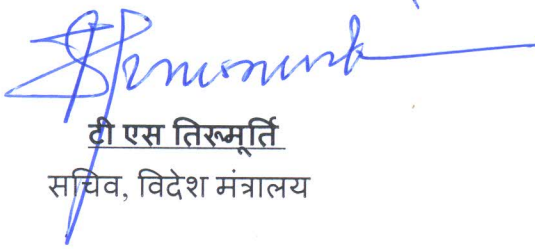 टी एस तिरूमूर्ति
सचिव, विदेश मंत्रालय